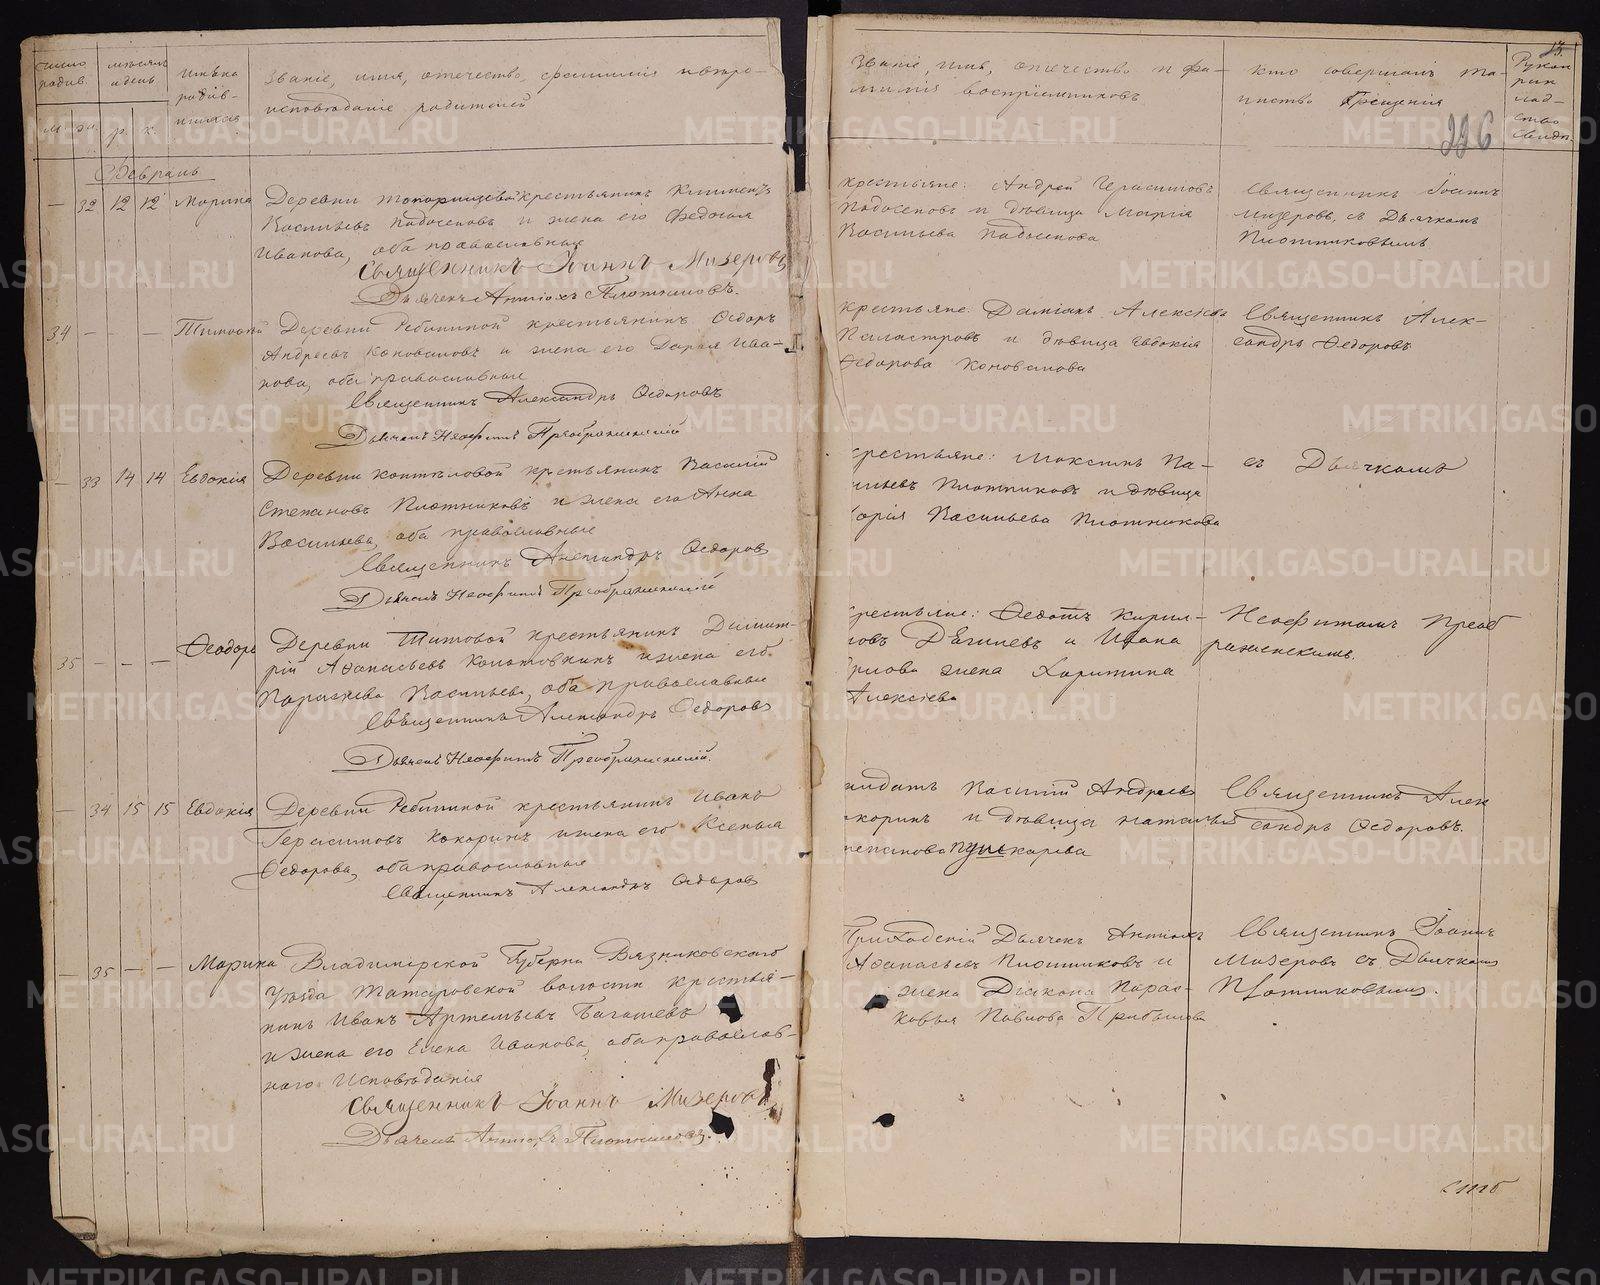 Число родив.
мѣсяцъ и день
имѣна родив-шихся
Званіе, имя, отчество, фамилія и вѣро-
исповѣданіе родителей
м. ж.
р. к.
Февраль
— 32 12 12 Марина Деревни Топорищевой крестьянинъ Климентъ
Васильевъ Падосеновъ и жена его Федосья
Иванова, оба православныя
Священникъ Іоаннъ Мизеровъ
Дьячекъ Антіохъ Плотниковъ.
34 — — — Тимофей Деревни Ребининой крестьянинъ Ѳедоръ
Андреевъ Коноваловъ и жена его Дарья Ива-
нова, оба православные
Священникъ Александръ Ѳедоровъ
Дьячекъ Неофитъ Преображенскій
— 33 14 14 Евдокія Деревни Коптѣловой крестьянинъ Василій
Степановъ Плотниковъ и жена его Анна
Васильева, оба православные
Священникъ Александръ Ѳедоровъ
Дьячекъ Неофитъ Преображенскій
35 — — — Ѳеодоръ Деревни Титовой крестьянинъ Димит-
рій Аѳанасьевъ и жена его
Параскева Васильева, оба православные
Священникъ Александръ Ѳедоровъ
Дьячекъ Неофитъ Преображенскій.
— 34 15 15 Евдокія Деревни Ребининой крестьянинъ Иванъ
Герасимовъ Кокоринъ и жена его Ксенья
Ѳедорова, оба православные
Священникъ Александръ Ѳедоровъ
— 35 — — Марина Владимірской Губерніи Вязниковскаго
Уѣзда Татаровской волости крестья-
нинъ Иванъ Артемьевъ Багашевъ
и жена его Елена Иванова, оба православ-
наго Исповѣданія
Священникъ Іоаннъ Мизеровъ
Дьячекъ Антіохъ Плотниковъ.
13.
Званіе, имя, отчество и фа-
милія воспріемниковъ
Кто совершалъ та-
инство Крещенія
226
Рукоп
рик
лад-
ство
свидѣт.
крестьяне: Андрей Герасимовъ
Падосеновъ и дѣвица Марія
Васильева Падосенова
Священникъ Іоаннъ
Мизеровъ, съ Дьячкомъ
Плотниковымъ
крестьяне: Даміанъ Алексѣевъ
Паластровъ и дѣвица Евдокія
Ѳедорова Коновалова
Священникъ Алек-
сандръ Ѳедоровъ
крестьяне: Максимъ Ва-
ильевъ Плотниковъ и дѣвица
арія Васильева Плотникова
съ Дьячкомъ
рестьяне: Ѳедотъ Кирил-
овъ и Ивана
жена Харитина
Алексѣева
Неофитомъ Преоб
раженскимъ.
олдатъ Василій Андреевъ
коринъ и дѣвица Наталья
тепанова Пушкарева
Священникъ Алек
сандръ Ѳедоровъ.
Приходскій Дьячекъ Антіохъ
Аѳанасьевъ Плотниковъ и
жена Дьякона Парас-
ковья Павлова Прибылова
Священникъ Іоаннъ
Мизеровъ съ Дьячкомъ
Плотниковымъ.
METRIKI.GASO-URAL.RU